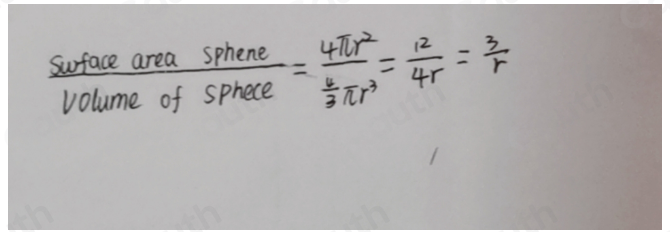 Surface area sphene / Volume of sphece = 4πr² / 4/3 πr³ = 12 / 4r = 3 / r